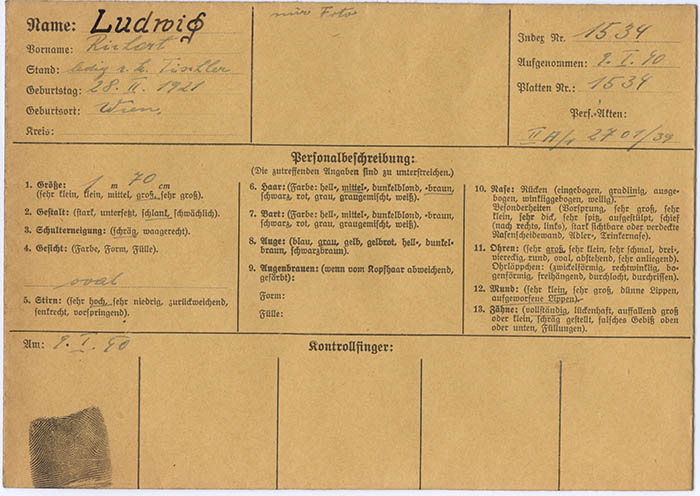 Name: Ludwig
Vorname:
Stand: ledig z. k. Tischler
Geburtstag: 28. II. 1921
Geburtsort: Wien,
Kreis:
nur Foto
Index Nr. 1534
Aufgenommen: 9. I. 40
Platten Nr.: 1534
Pers.-Akten:
II A/1 2701/39
Personalbeschreibung:
(Die zutreffenden Angaben sind zu unterstreichen.)
1. Größe: 1 m 70 cm
(sehr klein, klein, mittel, groß, sehr groß).
2. Gestalt: (stark, untersetzt, schlank, schwächlich).
3. Schulterneigung: (schräg, waagerecht).
4. Gesicht: (Farbe, Form, Fülle).
oval
5. Stirn: (sehr hoch, sehr niedrig, zurückweichend,
senkrecht, vorspringend).
6. Haar: (Farbe: hell-, mittel-, dunkelblond, -braun,
schwarz, rot, grau, graugemischt, weiß).
7. Bart: (Farbe: hell-, mittel-, dunkelblond, -braun,
schwarz, rot, grau, graugemischt, weiß).
8. Auge: (blau, grau, gelb, gelbrot, hell-, dunkel-
braun, schwarzbraun).
9. Augenbrauen: (wenn vom Kopfhaar abweichend,
gefärbt):
Form:
Fülle:
10. Nase: Rücken (eingebogen, gradlinig, ausge-
bogen, winkliggebogen, wellig).
Besonderheiten (Vorsprung, sehr groß, sehr
klein, sehr dick, sehr spitz, aufgestülpt, schief
(nach rechts, links), stark sichtbare oder verdeckte
Nasenscheidewand, Adler-, Trinkernase).
11. Ohren: (sehr groß, sehr klein, sehr schmal, drei-,
viereckig, rund, oval, abstehend, sehr anliegend).
Ohrläppchen: (zwickelförmig, rechtwinklig, bo-
genförmig, freihängend, durchlocht, durchrissen).
12. Mund: (sehr klein, sehr groß, dünne Lippen,
aufgeworfene Lippen).
13. Zähne: (vollständig, lückenhaft, auffallend groß
oder klein, schräg gestellt, falsches Gebiß oben
oder unten, Füllungen).
Am: 9. I. 40
Kontrollfinger: